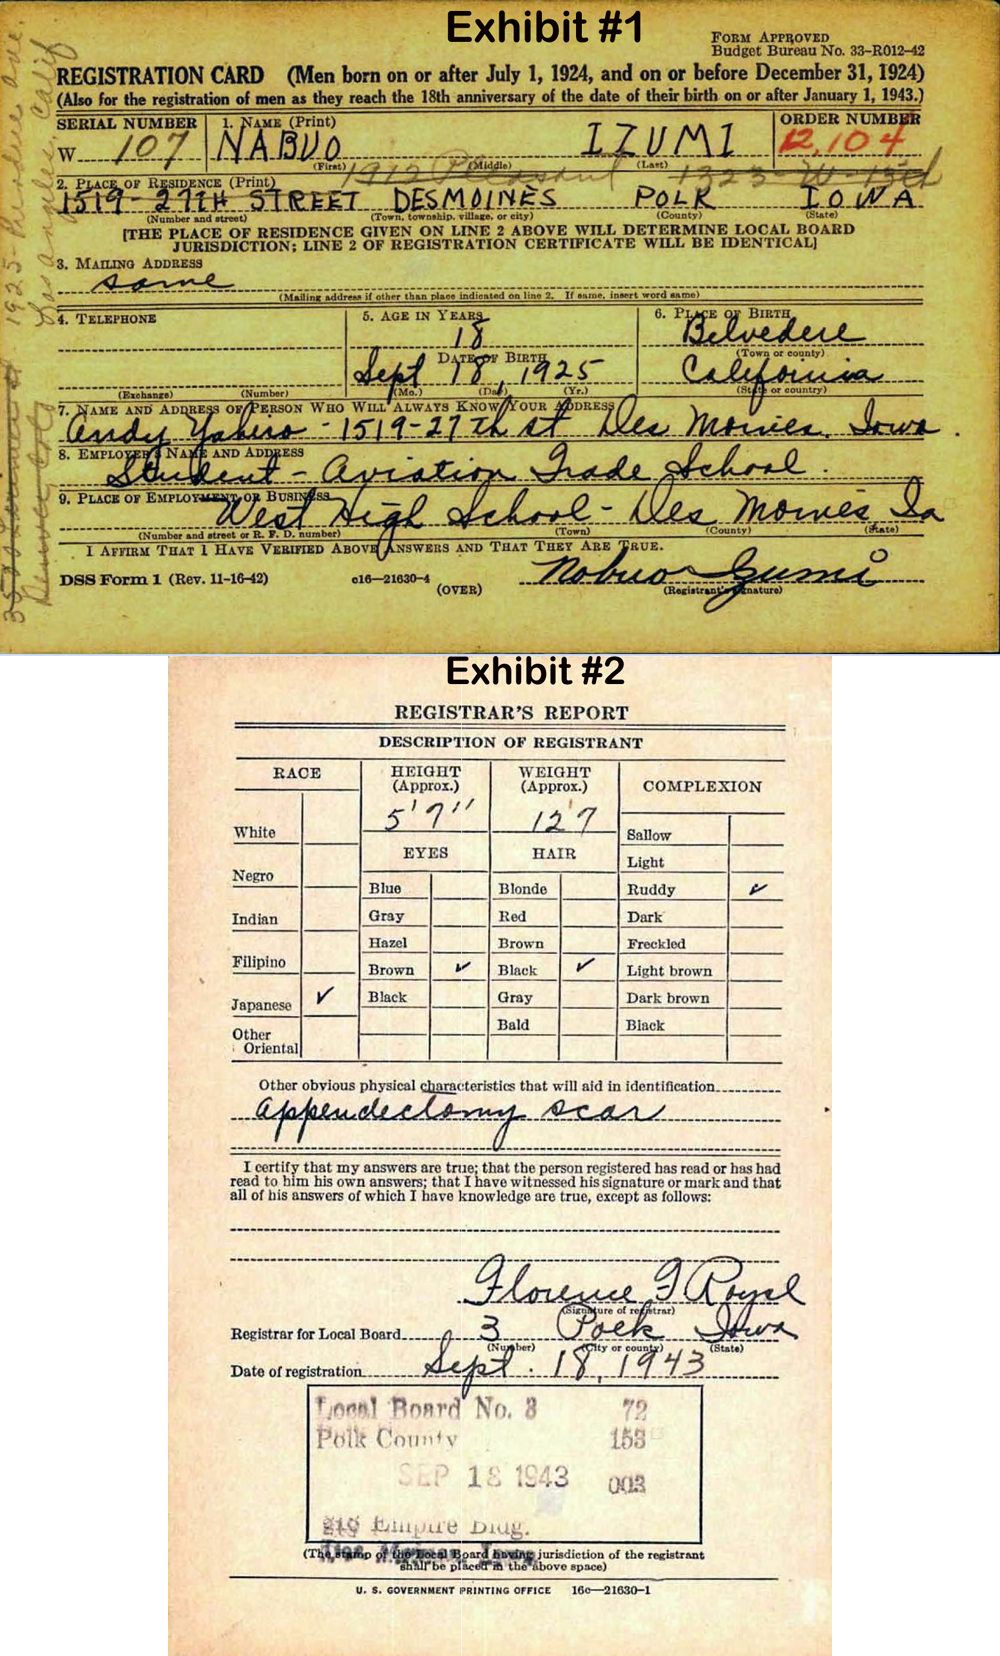 Exhibit #1
FORM APPROVED
Budget Bureau No. 33-R012-42
REGISTRATION CARD (Men born on or after July 1, 1924, and on or before December 31, 1924)
(Also for the registration of men as they reach the 18th anniversary of the date of their birth on or after January 1, 1943.)
SERIAL NUMBER 1. NAME (Print) ORDER NUMBER
W 107 NABUO IZUMI 12,104
(First) (Middle) (Last)
1912 Pleasant 1323- W- 13th
2. PLACE OF RESIDENCE (Print)
1519- 27TH STREET DESMOINES POLK IOWA
(Number and street) (Town, township, village, or city) (County) (State)
[THE PLACE OF RESIDENCE GIVEN ON LINE 2 ABOVE WILL DETERMINE LOCAL BOARD
JURISDICTION; LINE 2 OF REGISTRATION CERTIFICATE WILL BE IDENTICAL]
3. MAILING ADDRESS
same
(Mailing address if other than place indicated on line 2. If same, insert word same)
4. TELEPHONE 5. AGE IN YEARS 6. PLACE OF BIRTH
18 Belvedere
DATE OF BIRTH (Town or county)
Sept 18, 1925 California
(Exchange) (Number) (Mo.) (Day) (Yr.) (State or country)
7. NAME AND ADDRESS OF PERSON WHO WILL ALWAYS KNOW YOUR ADDRESS
Andy Yahiro - 1519-27th st Des Moines, Iowa.
8. EMPLOYER'S NAME AND ADDRESS
Student - Aviation Trade School.
9. PLACE OF EMPLOYMENT OR BUSINESS
West High School - Des Moines Ia
(Number and street or R. F. D. number) (Town) (County) (State)
I AFFIRM THAT I HAVE VERIFIED ABOVE ANSWERS AND THAT THEY ARE TRUE.
DSS Form 1 (Rev. 11-16-42) c16—21630-4 Nobuo Izumi
(OVER) (Registrant's signature)
1925- Ave.
Los Angeles, Calif
Denver, Colo
Exhibit #2
REGISTRAR'S REPORT
DESCRIPTION OF REGISTRANT
RACE HEIGHT (Approx.) WEIGHT (Approx.) COMPLEXION
5'7" 127
White Sallow
EYES HAIR
Light
Negro Blue Blonde Ruddy ✓
Indian Gray Red Dark
Hazel Brown Freckled
Filipino Brown ✓ Black ✓ Light brown
Japanese ✓ Black Gray Dark brown
Other Oriental Bald Black
Other obvious physical characteristics that will aid in identification
appendectomy scar
I certify that my answers are true; that the person registered has read or has had
read to him his own answers; that I have witnessed his signature or mark and that
all of his answers of which I have knowledge are true, except as follows:
Florence G Royal
(Signature of registrar)
Registrar for Local Board 3 Polk Iowa
(Number) (City or county) (State)
Date of registration Sept. 18, 1943
Local Board No. 3 72
Polk County 153
SEP 18 1943 003
Empire Bldg.
Des Moines, Iowa
(The stamp of the Local Board having jurisdiction of the registrant
shall be placed in the above space)
U. S. GOVERNMENT PRINTING OFFICE 16c—21630-1